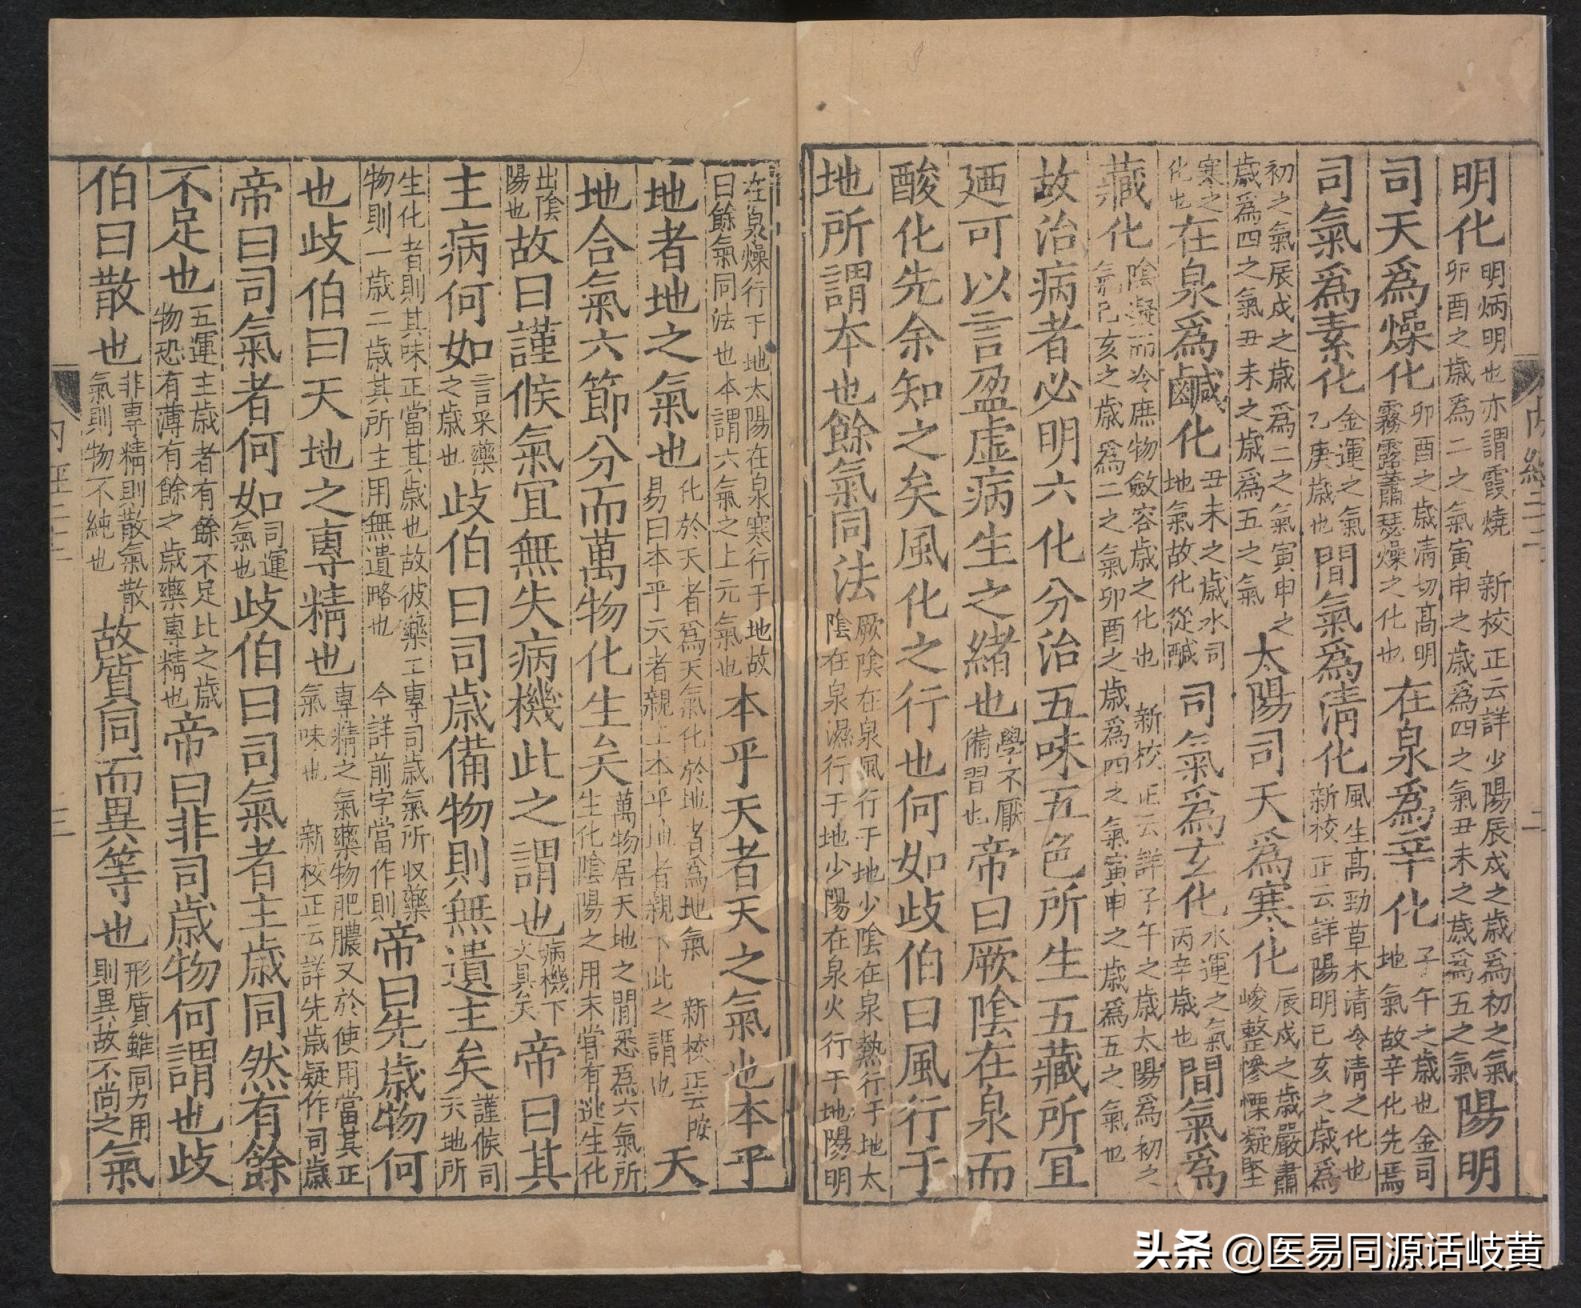 明化明炳明也亦謂霞燒 新校正云詳少陽辰戌之歲爲初之氣卯酉之歲爲二之氣寅申之歲爲四之氣丑未之歲爲五之氣陽明
司天爲燥化卯酉之歲清切高明霧露蕭瑟燥之化也在泉爲辛化子午之歲也金司地氣故辛化先焉
司氣爲素化金運之氣乙庚歲也間氣爲清化風生高勁草木清冷清之化也新校正云詳陽明巳亥之歲爲
初之氣辰戌之歲爲二之氣寅申之歲爲四之氣丑未之歲爲五之氣太陽司天爲寒化辰戌之歲嚴肅峻整慘慄凝堅
寒之化也在泉爲鹹化丑未之歲水司地氣故化從鹹司氣爲玄化水運之氣丙辛歲也間氣爲
藏化陰凝而冷庶物斂容歲之化也 新校正云詳子午之歲太陽爲初之氣巳亥之歲爲二之氣卯酉之歲爲四之氣寅申之歲爲五之氣也
故治病者必明六化分治五味五色所生五藏所宜
廼可以言盈虛病生之緒也學不厭備習也帝曰厥陰在泉而
酸化先余知之矣風化之行也何如歧伯曰風行于
地所謂本也餘氣同法厥陰在泉風行于地少陰在泉熱行于地太陰在泉濕行于地少陽在泉火行于地陽明
在泉燥行于地太陽在泉寒行于地故曰餘氣同法也本謂六氣之上元氣也本乎天者天之氣也本乎
地者地之氣也化於天者爲天氣化於地者爲地氣 新校正云按易曰本乎天者親上本乎地者親下此之謂也天
地合氣六節分而萬物化生矣萬物居天地之間悉爲六氣所生化陰陽之用未嘗有逃生化
出陰陽也故曰謹候氣宜無失病機此之謂也病機下文具矣帝曰其
主病何如言采藥之歲也歧伯曰司歲備物則無遺主矣謹候司天地所
生化者則其味正當其歲也故彼藥工專司歲氣所收藥物則一歲二歲其所主用無遺略也 今詳前字當作則帝曰先歲物何
也歧伯曰天地之專精也專精之氣藥物肥膿又於使用當其正氣味也 新校正云詳先歲疑作司歲
帝曰司氣者何如司運氣也歧伯曰司氣者主歲同然有餘
不足也五運主歲者有餘不足比之歲物恐有薄有餘之歲藥專精也帝曰非司歲物何謂也歧
伯曰散也非專精則散氣散氣則物不純也故質同而異等也形質雖同力用則異故不尚之氣
头条 @医易同源话岐黄